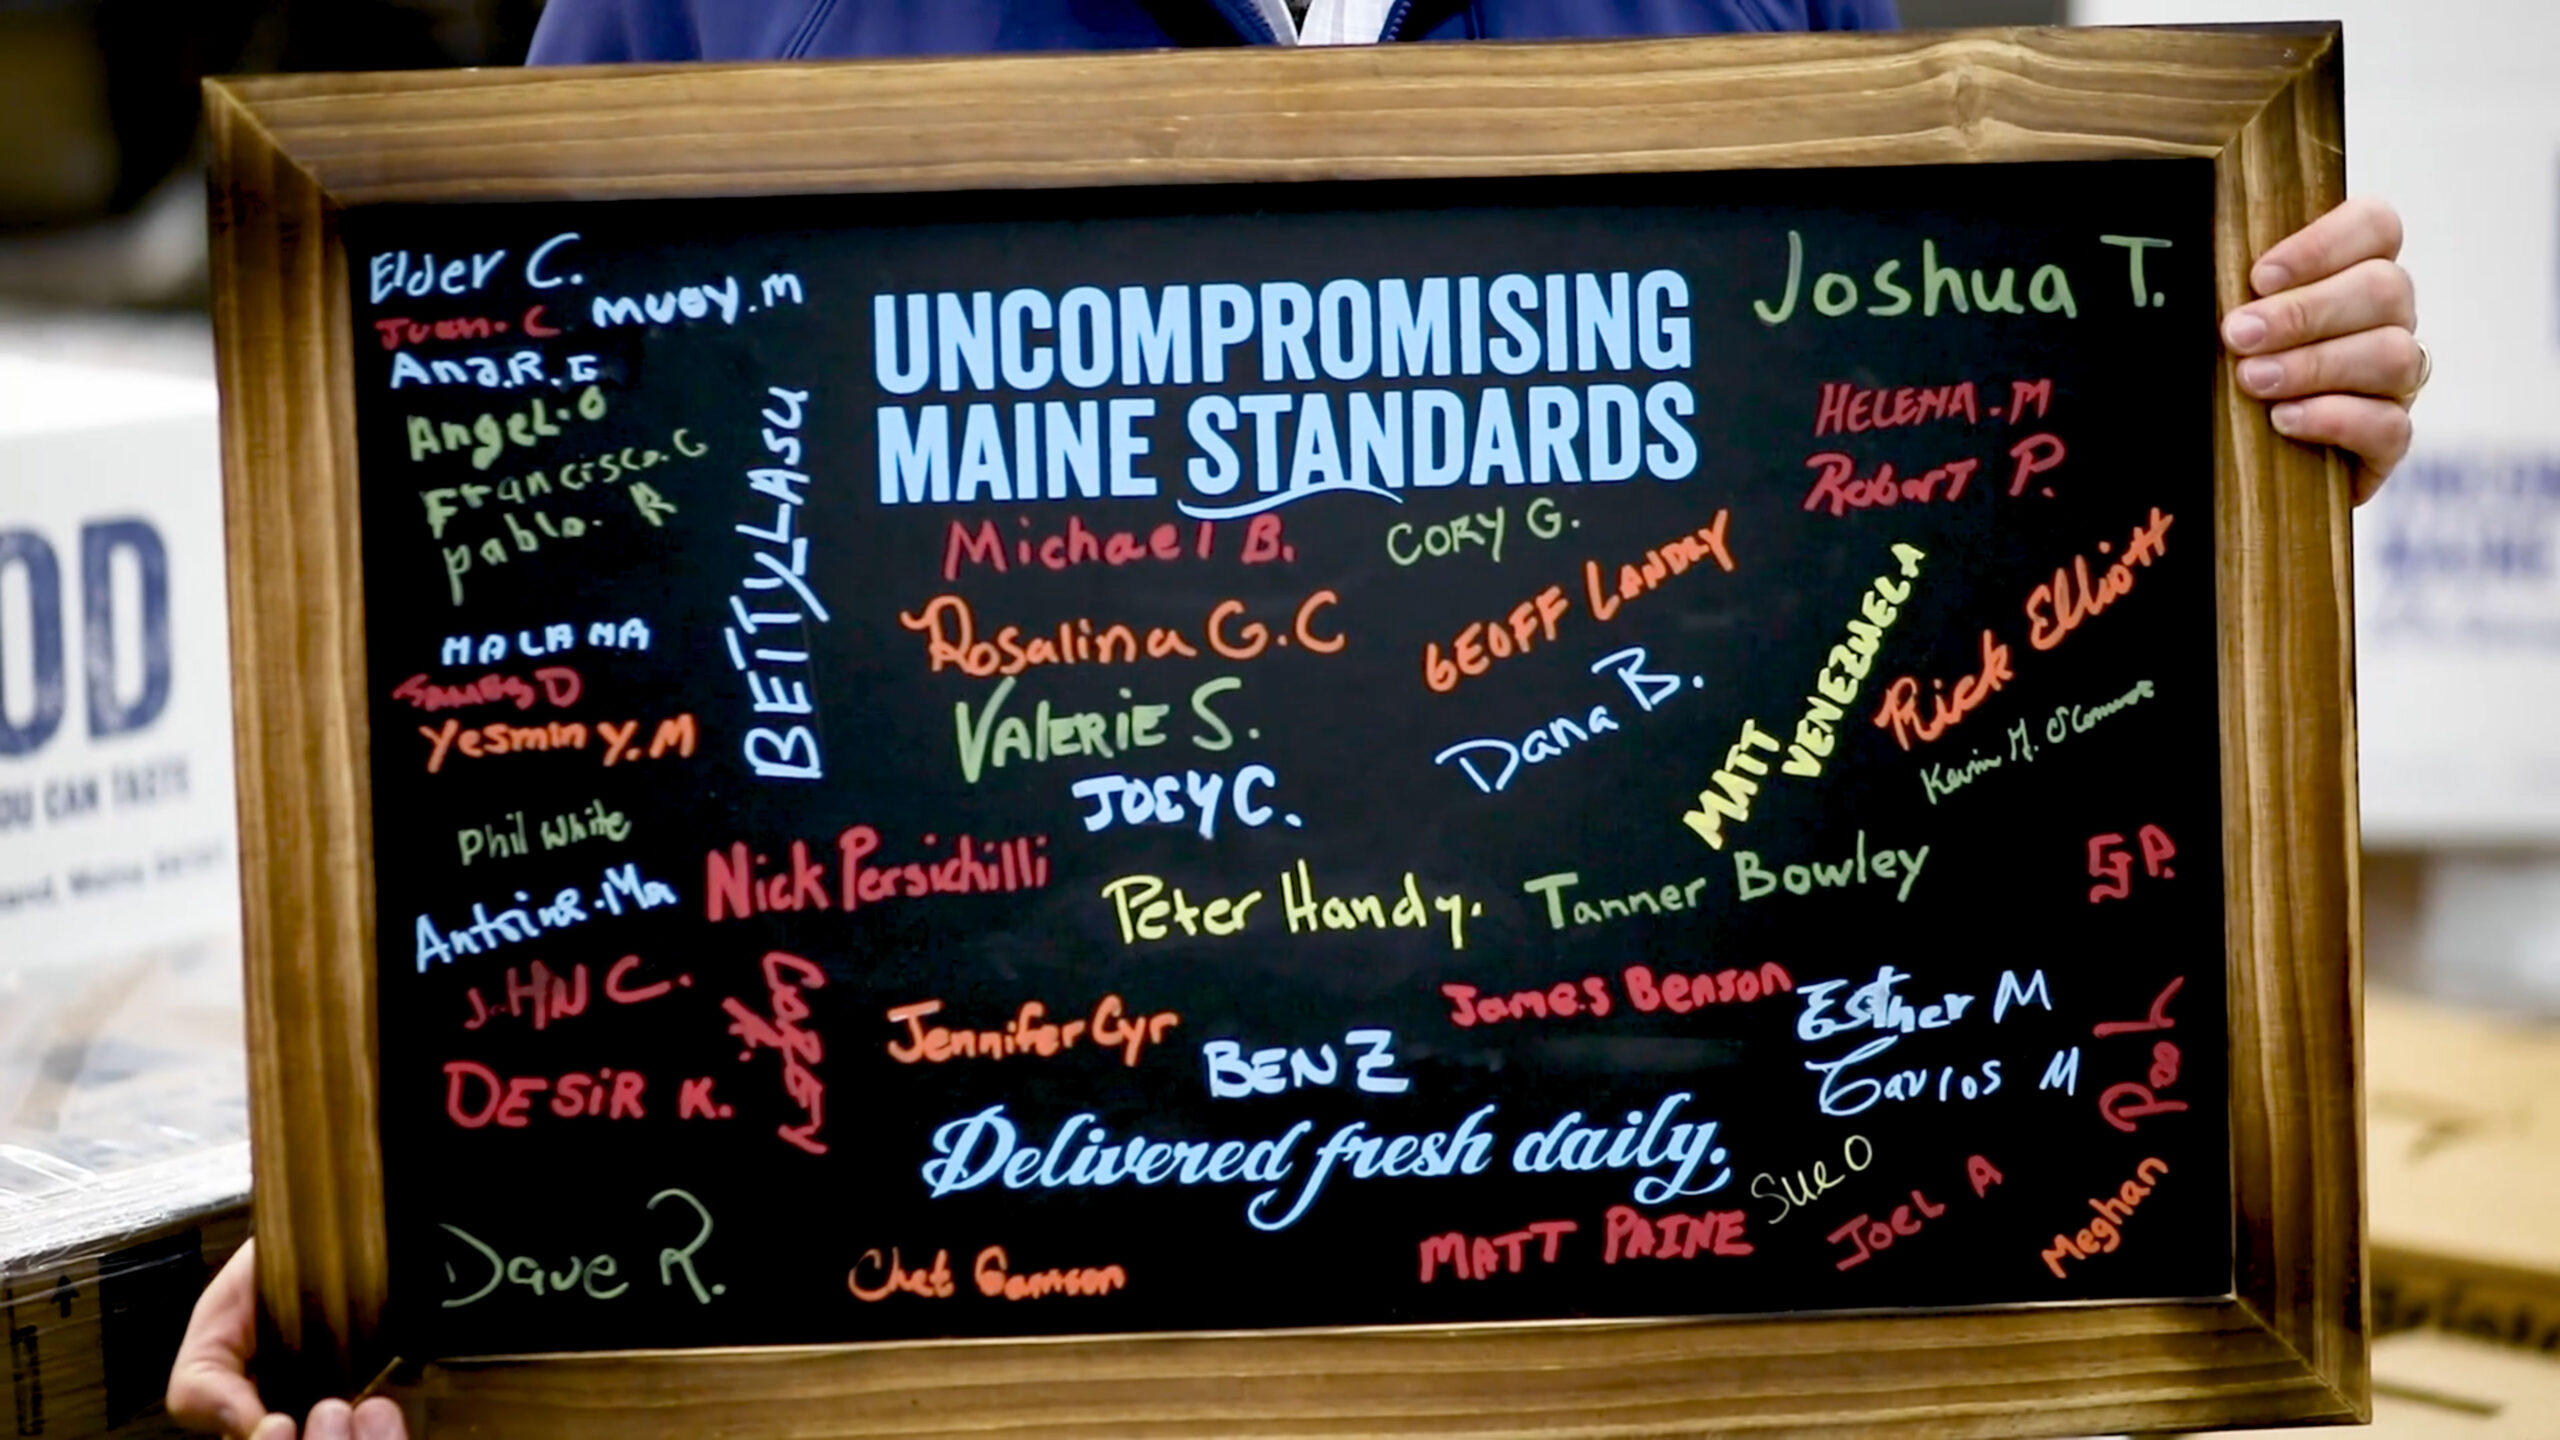 Elder C.
Juan. C
muoy.m
Ana.R.G
Angel.O
Francisco.G
pablo. R
BETTYLASU
MALAMA
D
Yesmin Y.M
Phil White
Nick Persichilli
J.HN C.
DESiR K.
Dave R.
UNCOMPROMISING
MAINE STANDARDS
Michael B.
CORY G.
Rosalina G.C
GEOFF LANDRY
VAlERiE S.
Dana B.
JOEY C.
Peter Handy.
Tanner Bowley
Jennifer Cyr
James Benson
BEN Z
Delivered fresh daily.
Chet
MATT PAINE
Sue O
JoeL A
Meghan
Joshua T.
HELENA.M
Robert P.
MATT
VENEZUELA
Rick Elliott
Kevin M. O'Connor
G.P.
Esther M
Carlos M
OD
OU CAN TASTE